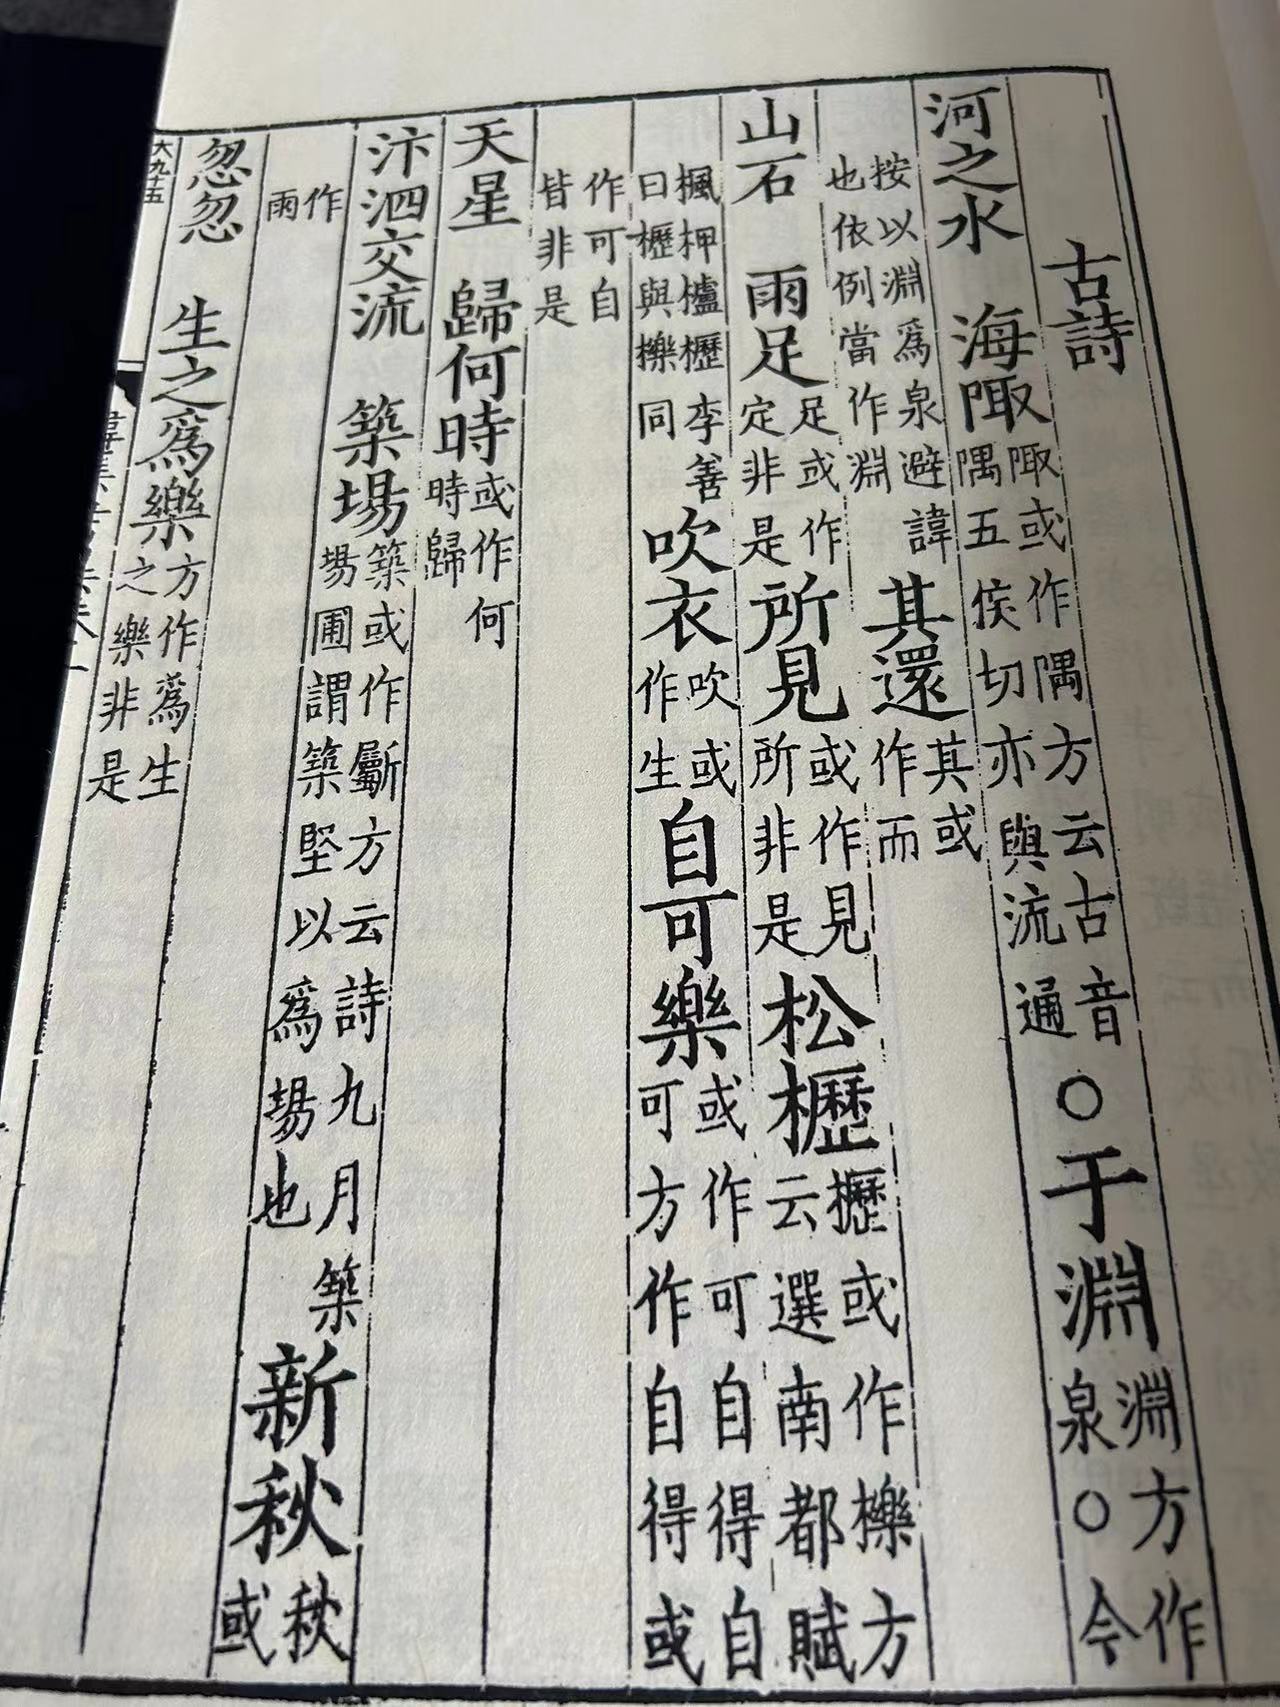 古詩
河之水　海陬陬或作隅方云古音隅五侯切亦與流通○于淵淵方作泉○今
按以淵爲泉避諱也依例當作淵其還其或作而
山石　雨足足或作定非是所見或作見所非是松櫪櫪或作櫟方云選南都賦
楓柙櫨櫪李善曰櫪與櫟同吹衣吹或作生自可樂或作可自得自可方作自得或
作可自皆非是
天星　歸何時或作何時歸
汴泗交流　築場築或作斸方云詩九月築場圃謂築堅以爲場也新秋秋或
作雨
忽忽　生之爲樂方作爲生之樂非是
大九十五